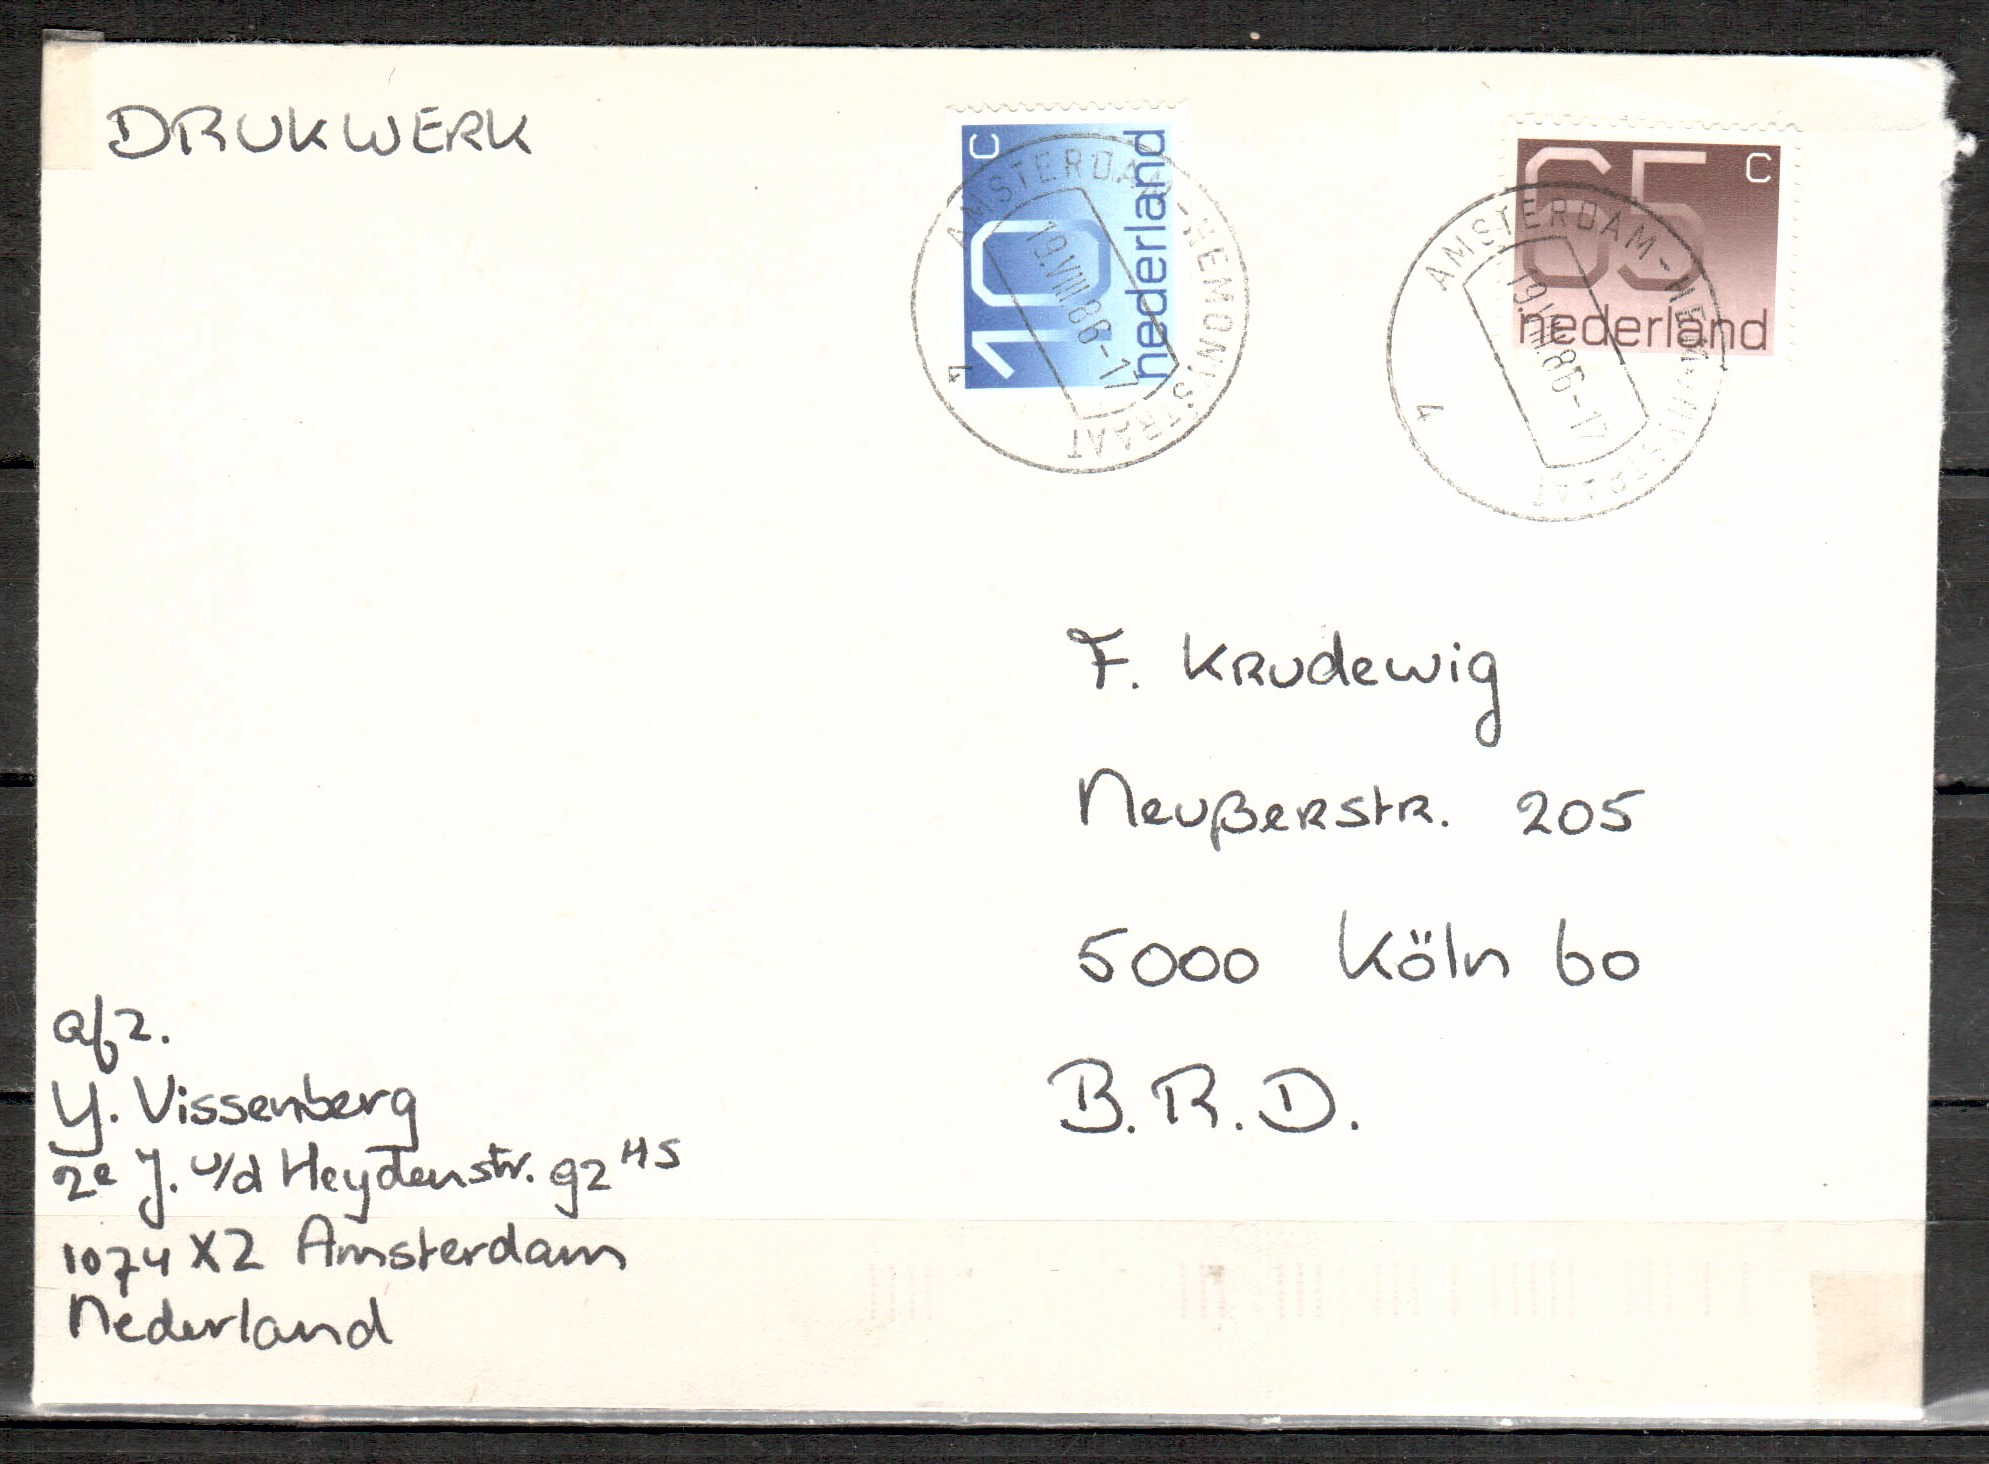 DRUKWERK
C
10
nederland
AMSTERDAM-HEMONYSTRAAT
19.VIII.86-17
4
65 C
nederland
AMSTERDAM-HEMONYSTRAAT
19.VIII.86-17
4
F. Krudewig
Neußerstr. 205
5000 Köln 60
B.R.D.
afz.
Y. Vissenberg
2e J. v/d Heydenstr. 92 HS
1074 XZ Amsterdam
Nederland